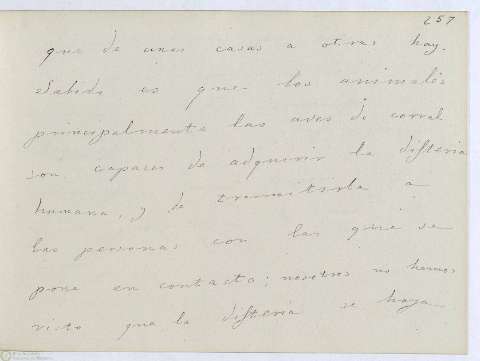 257
que de unas casas a otras hay.
Sabido es que los animales
principalmente las aves de corral
son capaces de adquirir la difteria
humana, y de trasmitirla a
las personas con las que se
pone en contacto; nosotros no hemos
visto que la difteria se haya